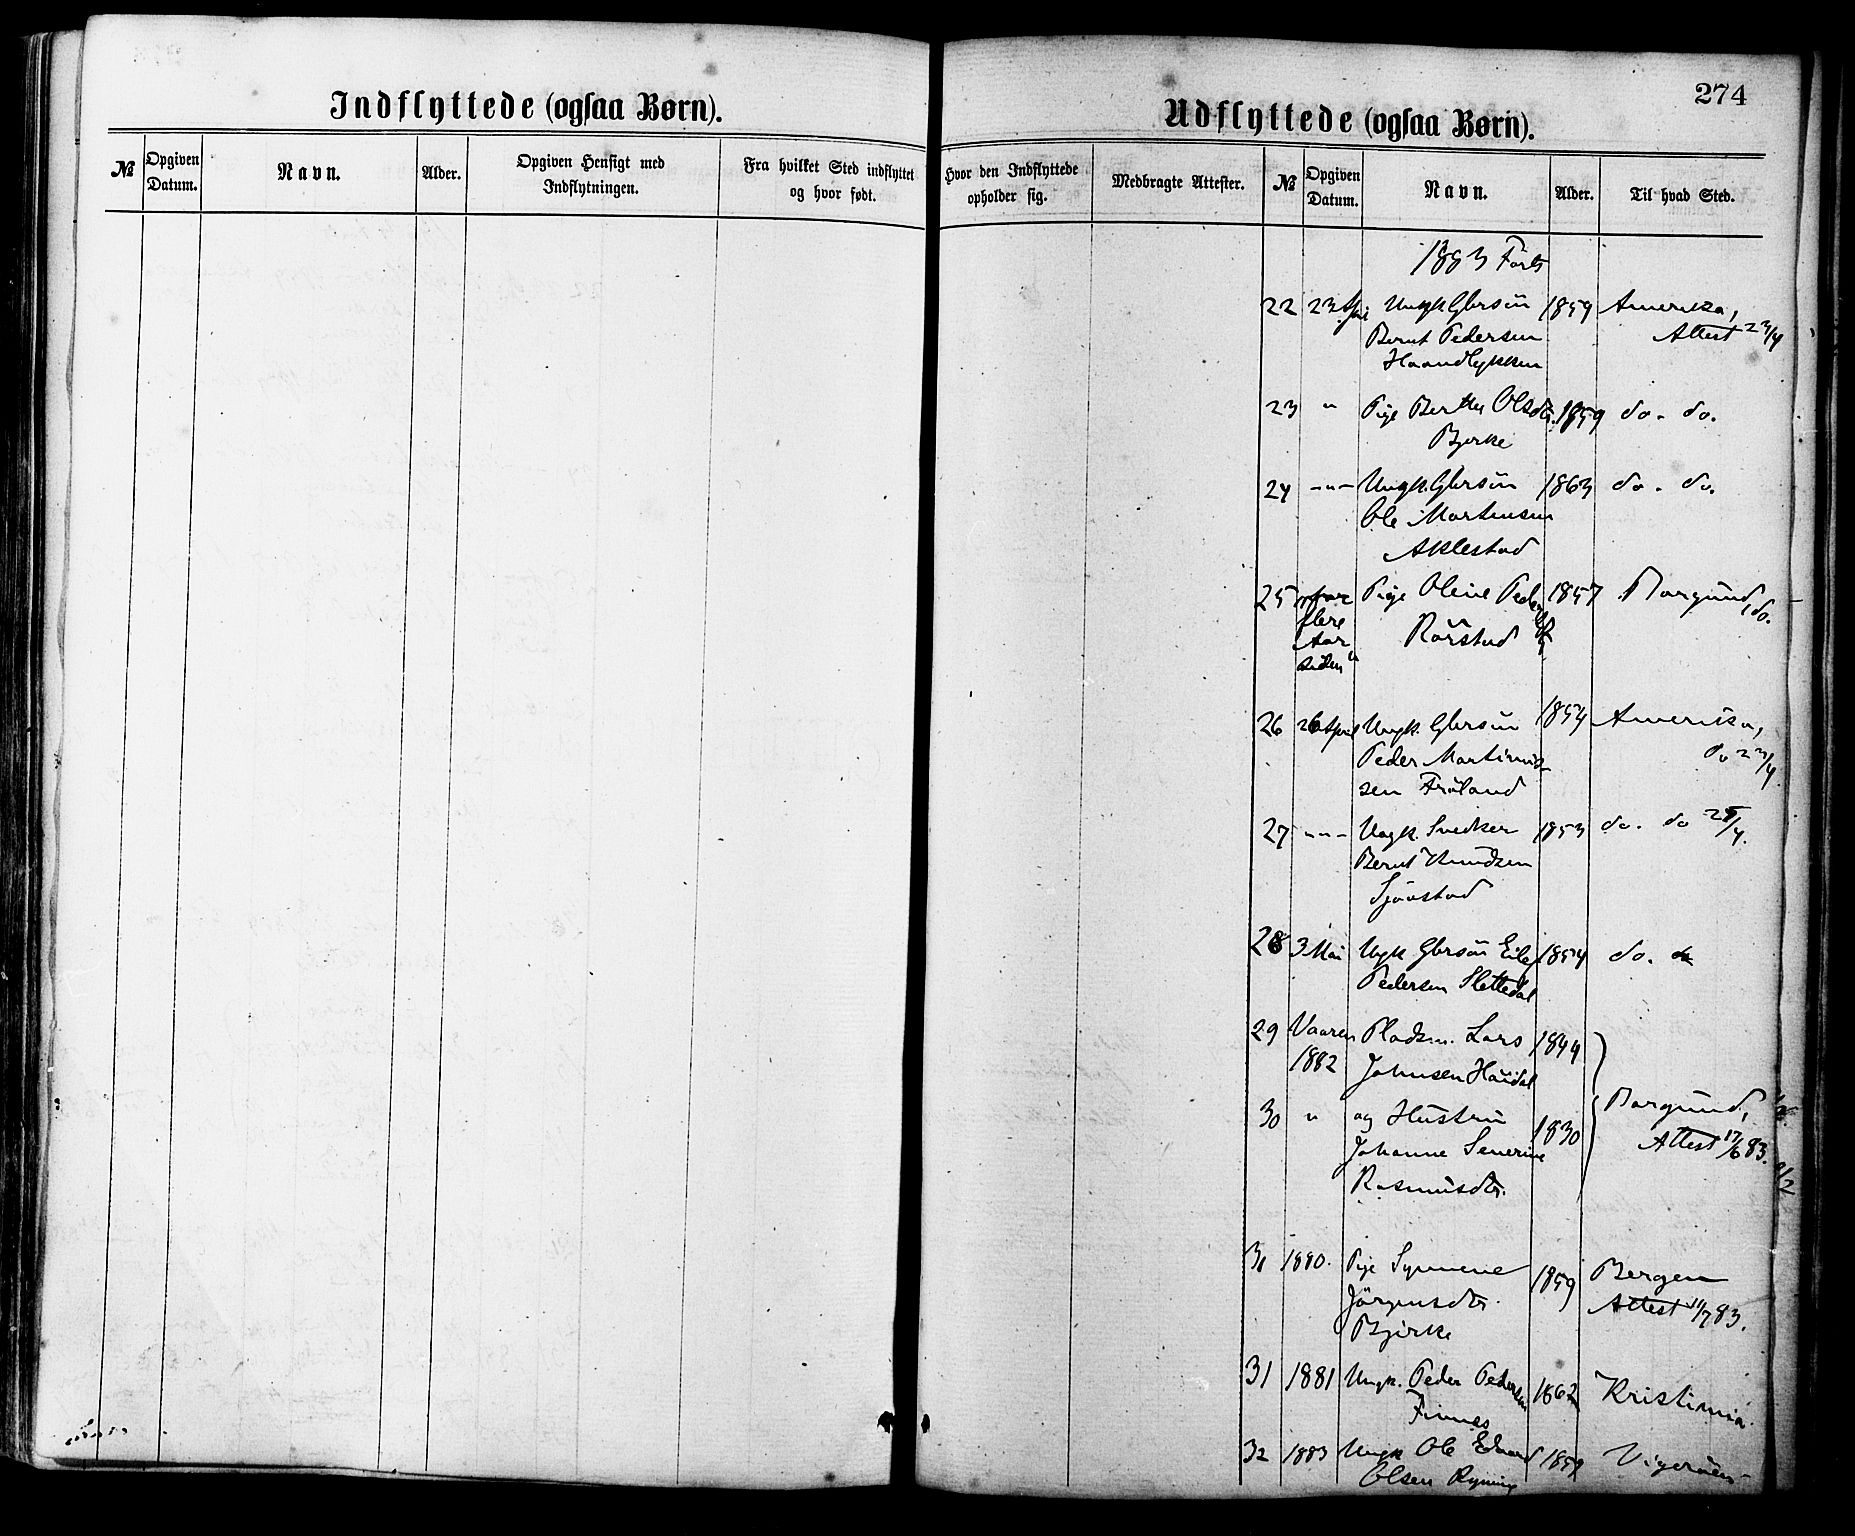 274
Indflyttede (ogsaa Børn).
Udflyttede (ogsaa Børn).
№ Opgiven Datum. Navn. Alder. Opgiven Hensigt med Indflytningen. Fra hvilket Sted indflyttet og hvor født. Hvor den Indflyttede opholder sig. Medbragte Attester. № Opgiven Datum. Navn. Alder. Til hvad Sted.
1883 Forts
22 23 April Ungk. Gbrsön 1859 Amerika,
Bernt Pedersen Attest 23/4
Haandlykken
23 " Pige Berthe Olsdtr. 1859 do. do.
Bjerke
24 -"- Ungk. Gbrsön 1863 do. do.
Ole Martensen
Aklestad
25 for Pige Oline Pedersdtr 1857 Borgund, do.
flere Rörstad
Aar
siden
26 26 April Ungk. Gbrsön 1854 Amerika,
Peder Martinus- do 23/4
sen Fröland
27 -"- Ungk. Snedker 1853 do. do 25/4.
Bernt Knudsen
Sjöastad
28 3 Mai Ungk Gbrsön 1854 do. do
Pedersen Slettedal
29 Vaaren Pladsm. Lars 1844
1882 Johnsen Haudal
30 " og Hustru 1830 Borgund,
Johanne Severine Attest 17/6 83.
Rasmusdtr.
31 1880. Pige Synneve 1859 Bergen
Jörgensdtr. Attest 11/7 83.
Bjerke
31 1881 Ungk. Peder Pedersen 1862 Kristiania.
Finnes
32 1883 Ungk Ole Edvard 1859 Vigeröen
Olsen Ryning